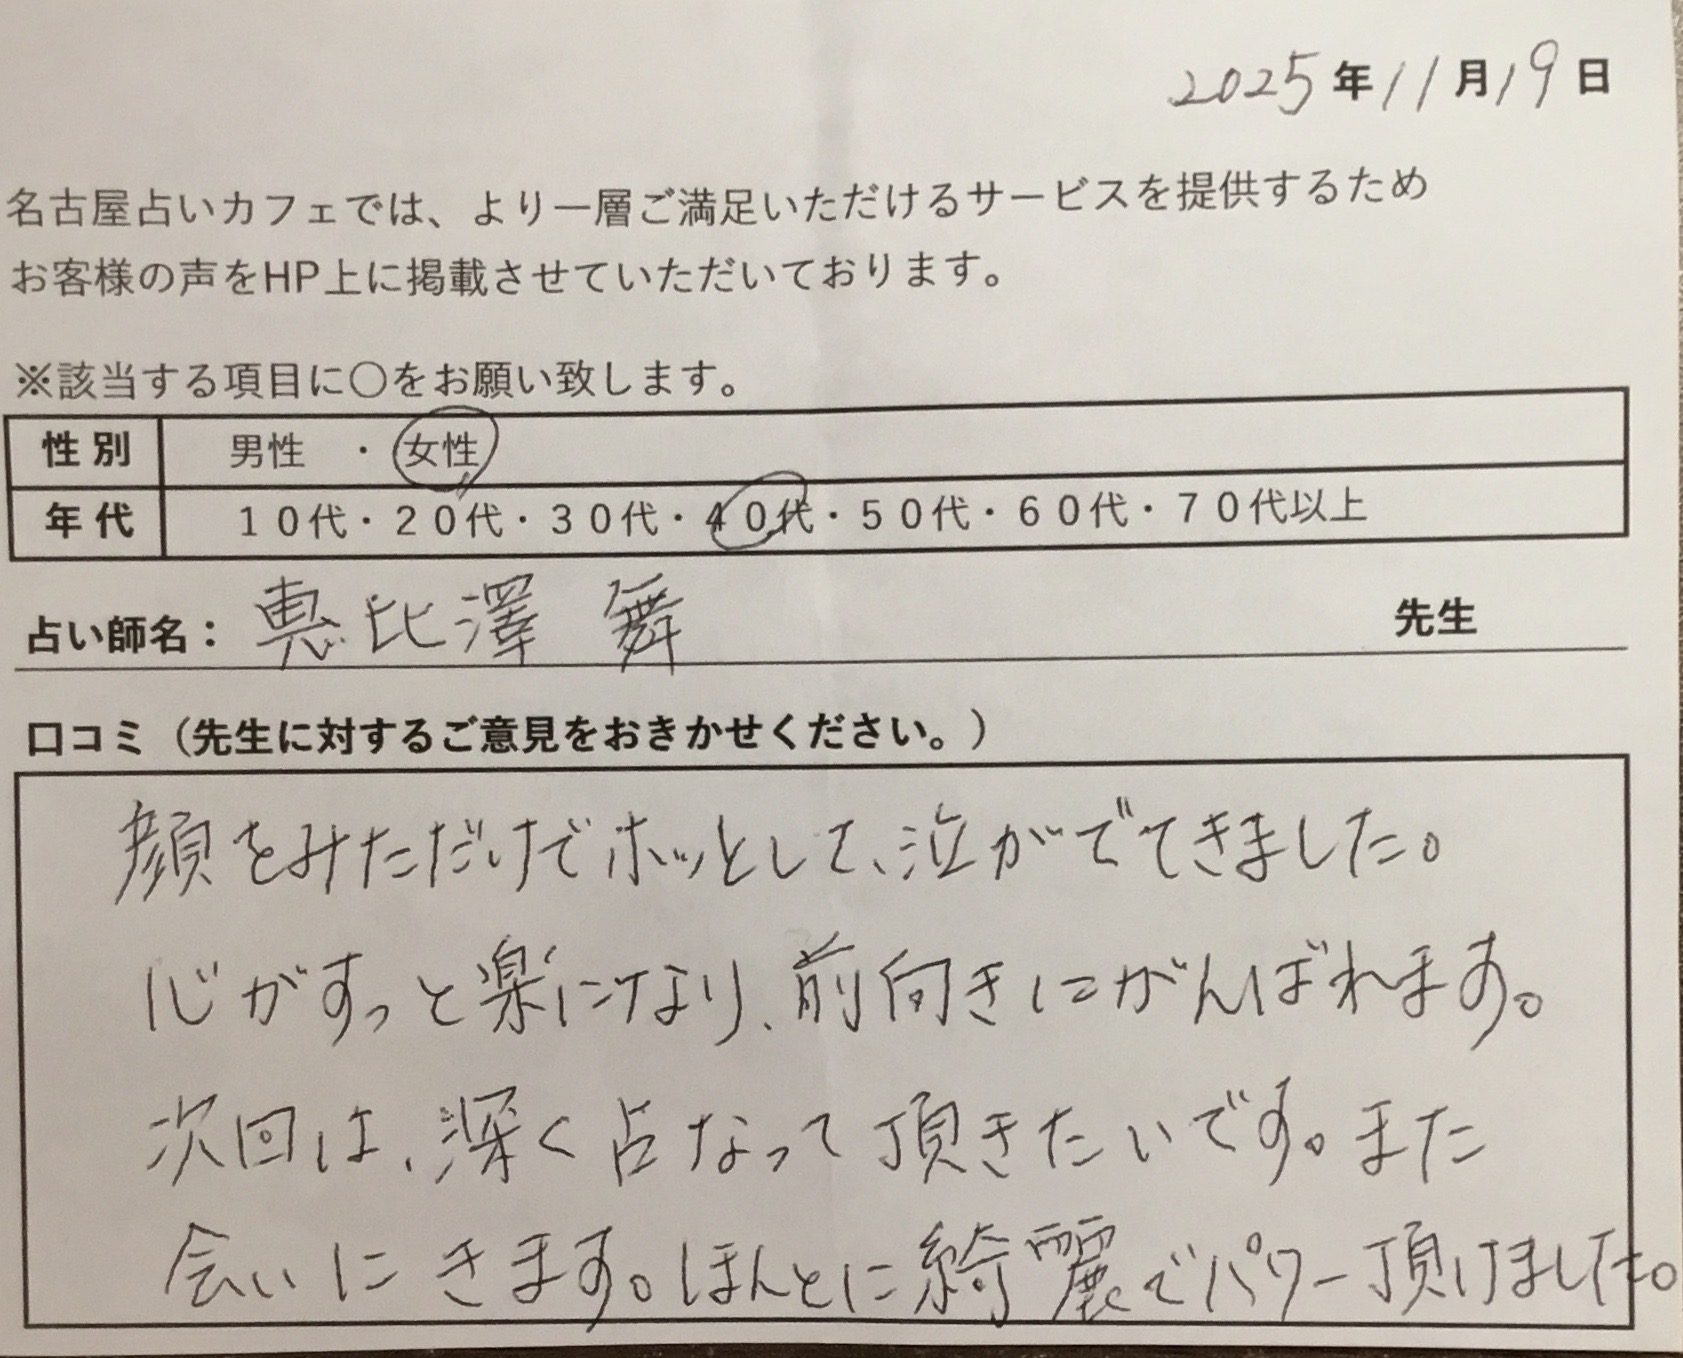 2025年11月19日
名古屋占いカフェでは、より一層ご満足いただけるサービスを提供するため
お客様の声をHP上に掲載させていただいております。
※該当する項目に〇をお願い致します。
性別 男性 ・ 女性
年代 10代・20代・30代・40代・50代・60代・70代以上
占い師名： 恵比澤 舞 先生
口コミ（先生に対するご意見をおきかせください。）
顔をみただけでホッとして、泣がでてきました。
心がすっと楽になり、前向きにがんばれます。
次回は、深く占なって頂きたいです。また
会いにきます。ほんとに綺麗でパワー頂けました。